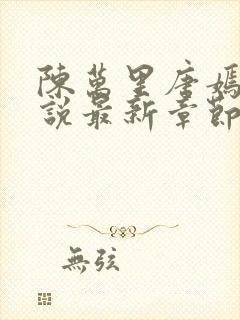 陳萬里唐嫣
說最新章節
無弦